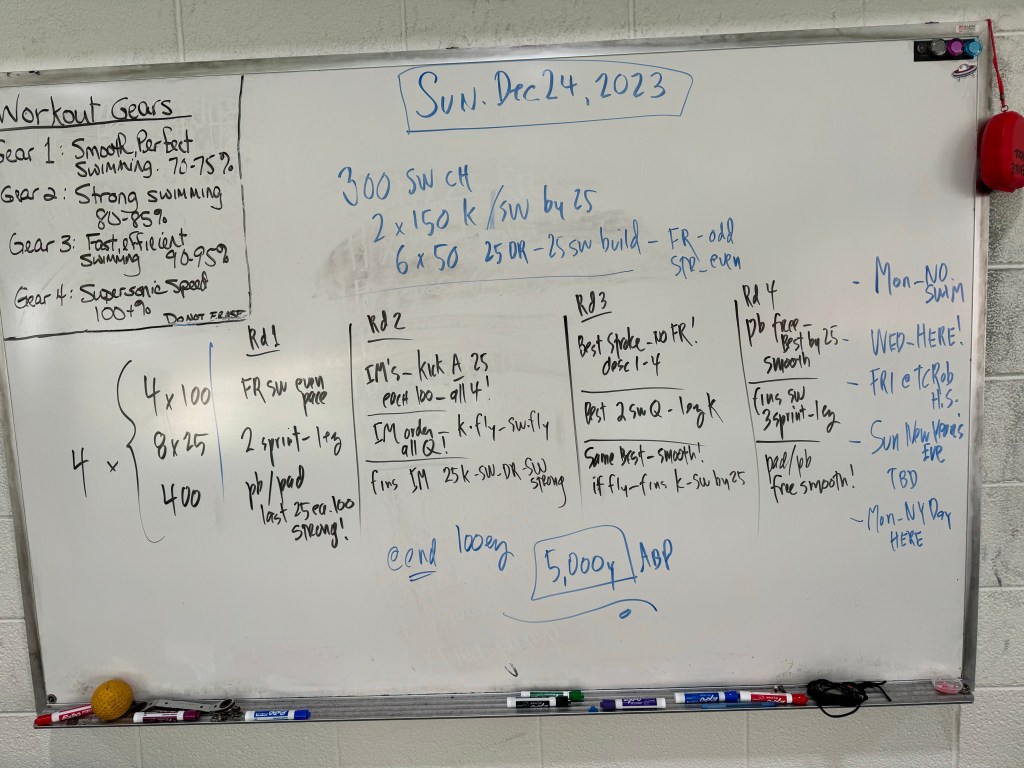 Workout Gears
Gear 1: Smooth, Perfect
swimming. 70-75%
Gear 2: Strong swimming
80-85%
Gear 3: Fast, efficient
swimming 90-95%
Gear 4: Supersonic Speed
100+%
DO NOT ERASE
Sun. Dec 24, 2023
300 SW CH
2 x 150 K/SW by 25
6 x 50 25 DR - 25 SW build - FR - odd
spe - even
4 x
4 x 100
8 x 25
400
Rd 1
FR SW even
pace
2 sprint - 1 ez
pb/pad
last 25 ea. 100
strong!
Rd 2
IM's - Kick A 25
each 100 - all 4!
IM order - K.fly - sw.fly
all Q!
fins IM 25 K-SW-DR-SW
strong
Rd 3
Best Stroke - no FR!
desc 1-4
Best 2 SW Q - 1 ez K
Same Best - smooth!
if fly - fins K-SW by 25
Rd 4
pb free -
Best by 25
smooth
fins SW
3 sprint - 1 ez
pad/pb
free smooth!
- Mon - NO
SWIM
- WED - HERE!
- FRI @ TC Rob
H.S.
- Sun New Year's
Eve
TBD
- Mon - NY Day
HERE
@ end 100 ez
5,000y ABP